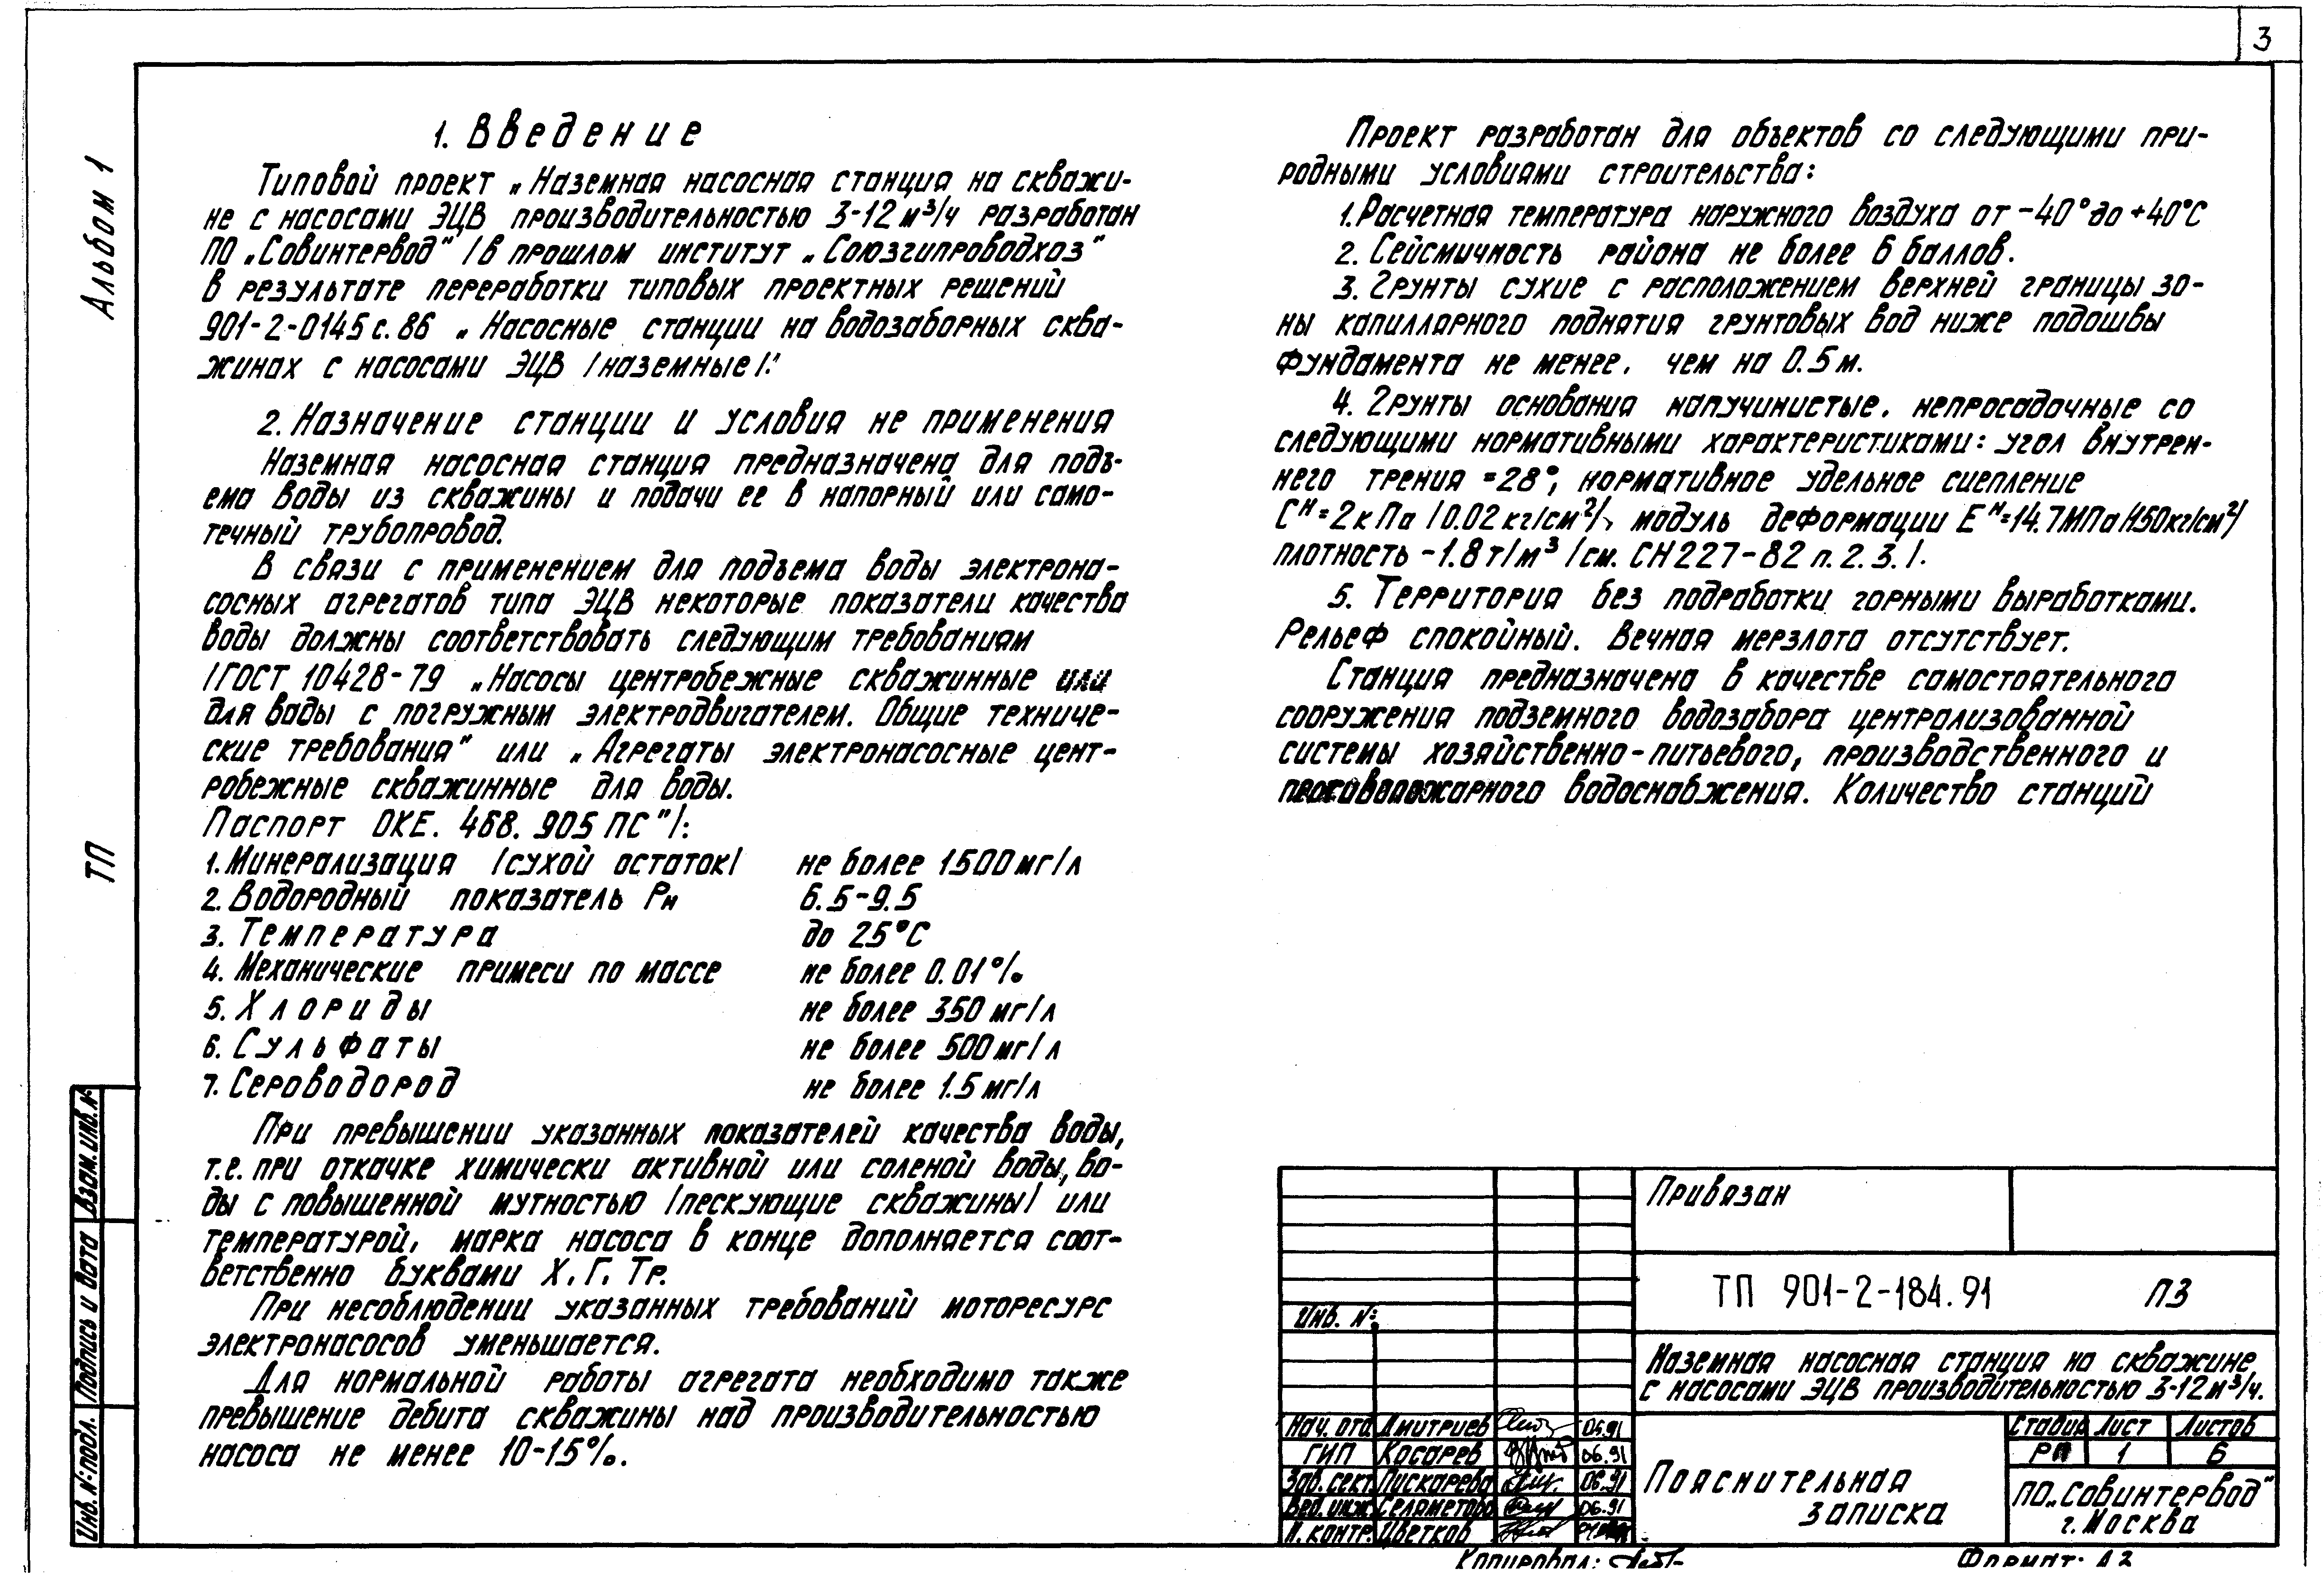 3
Альбом 1
ТП
1. Введение
Типовой проект „Наземная насосная станция на скважи-
не с насосами ЭЦВ производительностью 3-12 м³/ч разработан
ПО „Совинтервод" /в прошлом институт „Союзгипроводхоз"
в результате переработки типовых проектных решений
901-2-0145 с. 86 „Насосные станции на водозаборных сква-
жинах с насосами ЭЦВ /наземные/."
2. Назначение станции и условия не применения
Наземная насосная станция предназначена для подъ-
ема воды из скважины и подачи ее в напорный или само-
течный трубопровод.
В связи с применением для подъема воды электрона-
сосных агрегатов типа ЭЦВ некоторые показатели качества
воды должны соответствовать следующим требованиям
/ГОСТ 10428-79 „Насосы центробежные скважинные или
для воды с погружным электродвигателем. Общие техниче-
ские требования" или „Агрегаты электронасосные цент-
робежные скважинные для воды.
Паспорт ОКЕ. 468. 905 ПС"/:
1. Минерализация /сухой остаток/ не более 1500 мг/л
2. Водородный показатель Рн 6.5-9.5
3. Температура до 25°С
4. Механические примеси по массе не более 0.01%
5. Хлориды не более 350 мг/л
6. Сульфаты не более 500 мг/л
7. Сероводород не более 1.5 мг/л
При превышении указанных показателей качества воды,
т.е. при откачке химически активной или соленой воды, во-
ды с повышенной мутностью /пескующие скважины/ или
температурой, марка насоса в конце дополняется соот-
ветственно буквами Х, Г, Тр.
При несоблюдении указанных требований моторесурс
электронасосов уменьшается.
Для нормальной работы агрегата необходимо также
превышение дебита скважины над производительностью
насоса не менее 10-15%.
Проект разработан для объектов со следующими при-
родными условиями строительства:
1. Расчетная температура наружного воздуха от -40° до +40°С
2. Сейсмичность района не более 6 баллов.
3. Грунты сухие с расположением верхней границы зо-
ны капиллярного поднятия грунтовых вод ниже подошвы
фундамента не менее, чем на 0.5 м.
4. Грунты основания напучинистые, непросадочные со
следующими нормативными характеристиками: угол внутрен-
него трения =28°, нормативное удельное сцепление
Сᴴ=2кПа /0.02 кг/см²/, модуль деформации Eᴴ=14.7МПа/150кг/см²/
плотность -1.8 т/м³ /см. СН 227-82 п. 2. 3. /.
5. Территория без подработки горными выработками.
Рельеф спокойный. Вечная мерзлота отсутствует.
Станция предназначена в качестве самостоятельного
сооружения подземного водозабора централизованной
системы хозяйственно-питьевого, производственного и
противопожарного водоснабжения. Количество станций
Взам. инв. №
Подпись и дата
Инв. № подл.
Привязан
Инв. №
ТП 901-2-184.91 ПЗ
Наземная насосная станция на скважине
с насосами ЭЦВ производительностью 3-12 м³/ч.
Нач. отд. Дмитриев 06.91
ГИП Косарев 06.91
Зав. сект. Пискарева 06.91
Вед. инж. Селяметова 06.91
Н. контр. Цветков
Пояснительная
записка
Стадия Лист Листов
РП 1 6
ПО „Совинтервод"
г. Москва
Копировал:
Формат А2